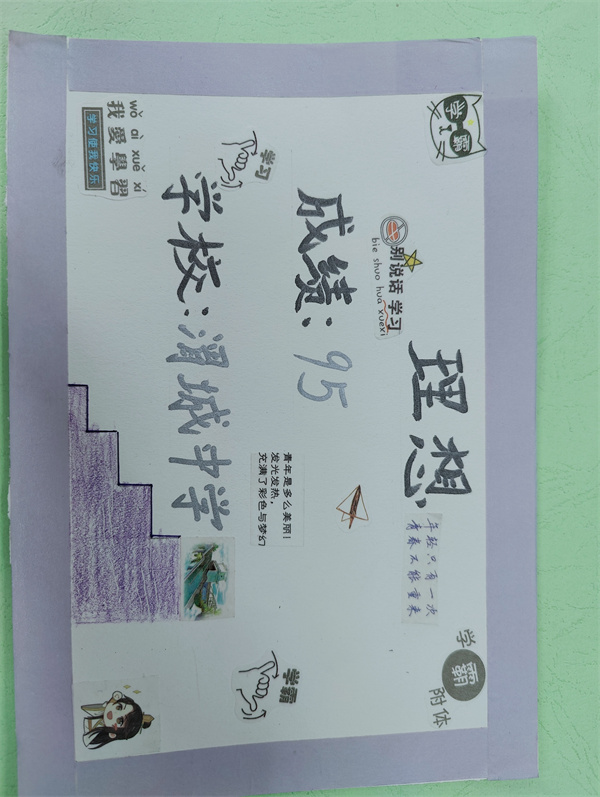 学霸
别说话 学习
bie shuo hua xuexi
理想
年轻只有一次
青春不能重来
学霸附体
学习
成绩：95
青年是多么美丽！
发光发热，
充满了彩色与梦幻
学霸
wǒ ài xué xí
我愛學習
学习使我快乐
学校：渭城中学